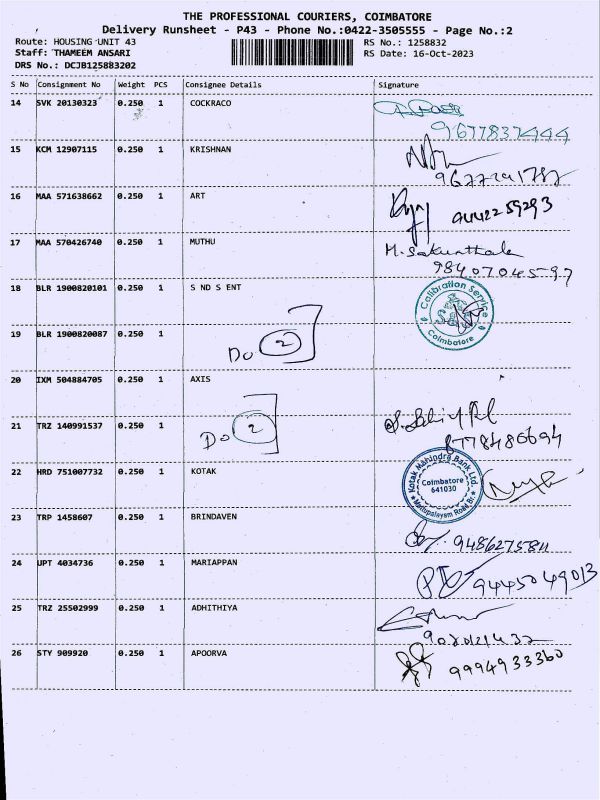 THE PROFESSIONAL COURIERS, COIMBATORE
Delivery Runsheet - P43 - Phone No.:0422-3505555 - Page No.:2
Route: HOUSING UNIT 43 RS No.: 1258832
Staff: THAMEEM ANSARI RS Date: 16-Oct-2023
DRS No.: DCJB125883202
S No Consignment No Weight PCS Consignee Details Signature
14 SVK 20130323 0.250 1 COCKRACO
9677837444
15 KCM 12907115 0.250 1 KRISHNAN
16 MAA 571638662 0.250 1 ART
9442259293
17 MAA 570426740 0.250 1 MUTHU M. Sakunthala
9840704597
18 BLR 1900820101 0.250 1 S ND S ENT Calibration Service
Coimbatore
19 BLR 1900820087 0.250 1
Do 2
20 IXM 504884705 0.250 1 AXIS
21 TRZ 140991537 0.250 1
Do 2 8778480694
22 HRD 751007732 0.250 1 KOTAK Kotak Mahindra Bank Ltd.
Coimbatore
641030
Mettupalayam Road Br.
23 TRP 1458607 0.250 1 BRINDAVEN
9486275811
24 UPT 4034736 0.250 1 MARIAPPAN
9445049013
25 TRZ 25502999 0.250 1 ADHITHIYA
26 STY 909920 0.250 1 APOORVA
9994933360